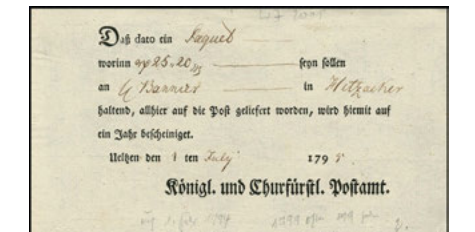 Daß dato ein Paquet
worinn 25. 20 seyn sollen
an Banniers in Hitzacker
haltend, allhier auf die Post geliefert worden, wird hiemit auf
ein Jahr bescheiniget.
Ueltzen den 1 ten July 179
Königl. und Churfürstl. Postamt.